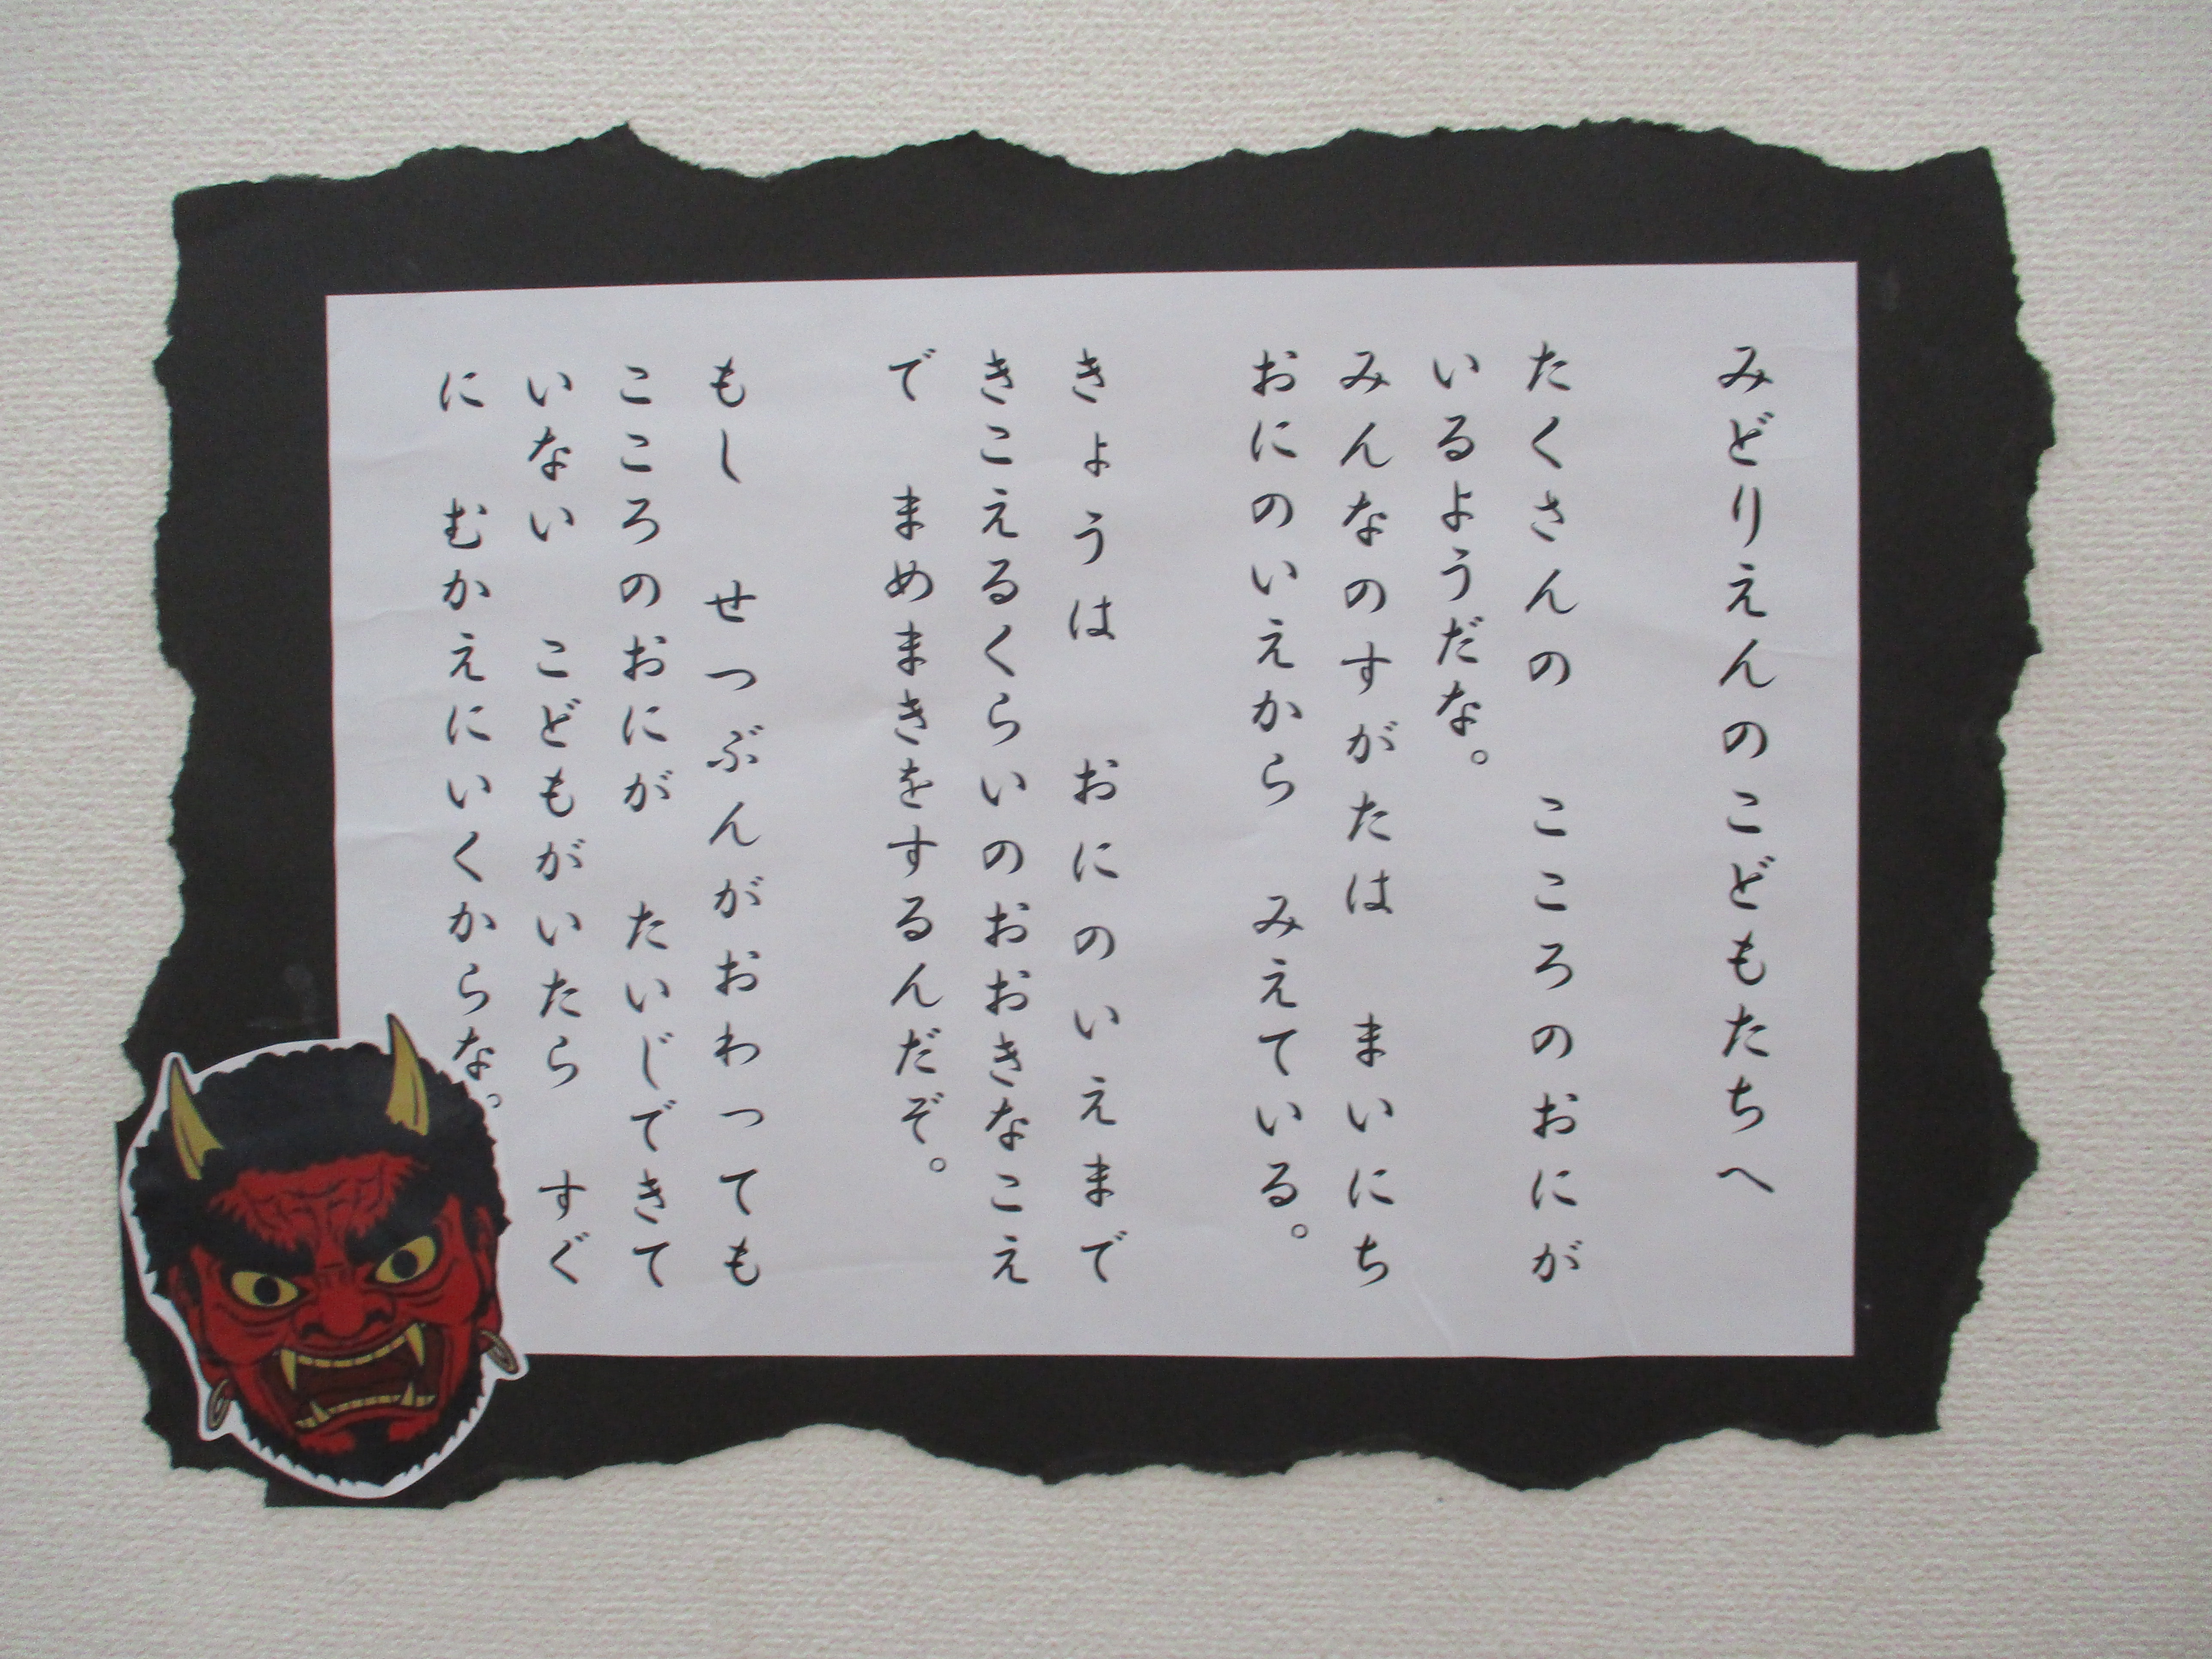 みどりえんのこどもたちへ
たくさんの　こころのおにが
いるようだな。
みんなのすがたは　まいにち
おにのいえから　みえている。
きょうは　おにのいえまで
きこえるくらいのおおきなこえ
で　まめまきをするんだぞ。
もし　せつぶんがおわっても
こころのおにが　たいじできて
いない　こどもがいたら　すぐ
に　むかえにいくからな。